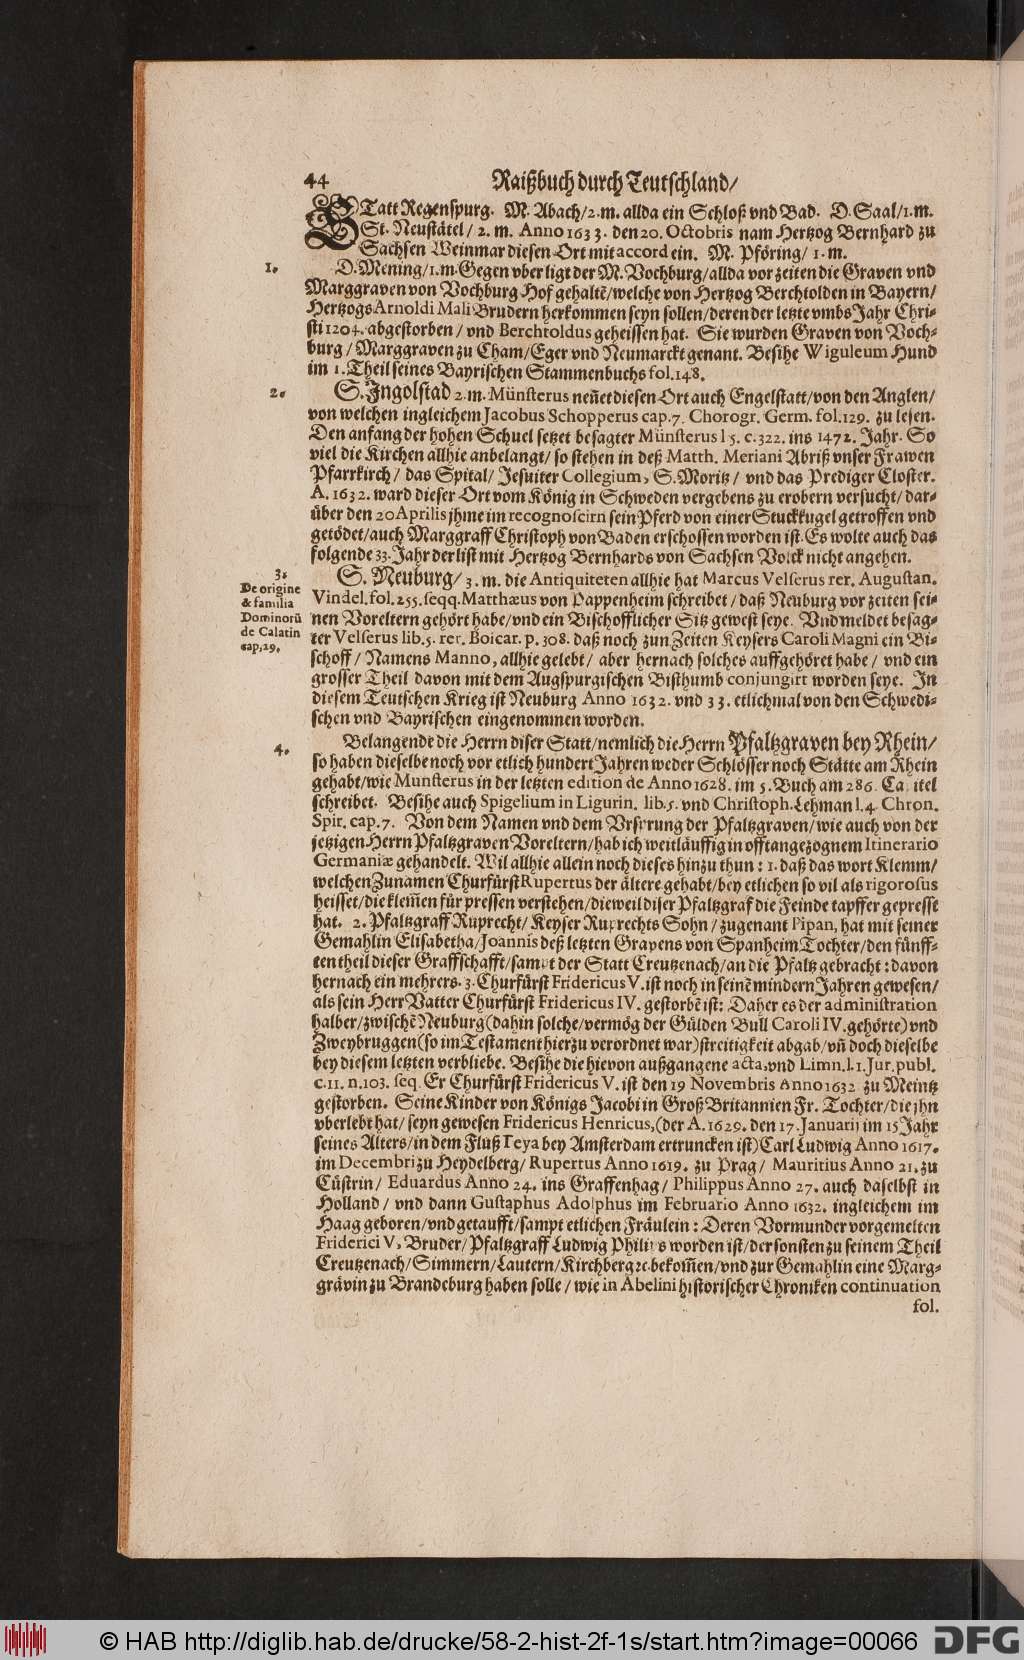 44 Raißbuch durch Teutschland/
STatt Regenspurg. M. Abach/2.m. allda ein Schloß vnd Bad. D. Saal/1.m.
St. Neustätel/ 2. m. Anno 1633. den 20. Octobris nam Hertzog Bernhard zu
Sachsen Weinmar diesen Ort mit accord ein. M. Pföring/ 1. m.
1. D. Mening/1.m. Gegen vber ligt der M. Vochburg/allda vor zeiten die Graven vnd
Marggraven von Vochburg Hof gehaltē/welche von Hertzog Berchtolden in Bayern/
Hertzogs Arnoldi Mali Brudern herkommen seyn sollen/deren der letzte vmbs Jahr Chri-
sti 1204. abgestorben/ vnd Berchtoldus geheissen hat. Sie wurden Graven von Voch-
burg/ Marggraven zu Cham/Eger vnd Neumarckt genant. Besihe Wiguleum Hund
im 1. Theil seines Bayrischen Stammenbuchs fol.148.
2. S. Ingolstad 2.m. Münsterus neñet diesen Ort auch Engelstatt/von den Anglen/
von welchen ingleichem Jacobus Schopperus cap.7. Chorogr. Germ. fol.129. zu lesen.
Den anfang der hohen Schuel setzet besagter Münsterus l 5. c.322. ins 1472. Jahr. So
viel die Kirchen allhie anbelangt/ so stehen in deß Matth. Meriani Abriß vnser Frawen
Pfarrkirch/ das Spital/ Jesuiter Collegium, S. Moritz/ vnd das Prediger Closter.
A. 1632. ward dieser Ort vom König in Schweden vergebens zu erobern versucht/ dar-
über den 20 Aprilis jhme im recognoscirn sein Pferd von einer Stuckkugel getroffen vnd
getödet/auch Marggraff Christoph von Baden erschossen worden ist. Es wolte auch das
folgende 33. Jahr der list mit Hertzog Bernhards von Sachsen Volck nicht angehen.
3. S. Neuburg/ 3. m. die Antiquiteten allhie hat Marcus Velserus rer. Augustan.
De origine
& familia
Dominorũ
de Calatin
cap. 29.
Vindel. fol. 255. seqq. Matthæus von Pappenheim schreibet/ daß Neuburg vor zeiten sei-
nen Voreltern gehört habe/vnd ein Bischofflicher Sitz gewest seye. Vnd meldet besag-
ter Velserus lib.5. rer. Boicar. p. 308. daß noch zun Zeiten Keysers Caroli Magni ein Bi-
schoff/ Namens Manno, allhie gelebt/ aber hernach solches auffgehöret habe/ vnd ein
grosser Theil davon mit dem Augspurgischen Bisthumb conjungirt worden seye. In
diesem Teutschen Krieg ist Neuburg Anno 1632. vnd 33. etlichmal von den Schwedi-
schen vnd Bayrischen eingenommen worden.
4. Belangende die Herrn diser Statt/nemlich die Herrn Pfaltzgraven bey Rhein/
so haben dieselbe noch vor etlich hundert Jahren weder Schlösser noch Stätte am Rhein
gehabt/wie Munsterus in der letzten edition de Anno 1628. im 5. Buch am 286. Capitel
schreibet. Besihe auch Spigelium in Ligurin. lib.5. vnd Christoph. Lehman l.4. Chron.
Spir. cap. 7. Von dem Namen vnd dem Vrsprung der Pfaltzgraven/ wie auch von der
jetzigen Herrn Pfaltzgraven Voreltern/hab ich weitläuffig in offtangezognem Itinerario
Germaniæ gehandelt. Wil allhie allein noch dieses hinzu thun: 1. daß das wort Klemm/
welchen Zunamen Churfürst Rupertus der ältere gehabt/bey etlichen so vil als rigorosus
heisset/die klem̃en für pressen verstehen/dieweil diser Pfaltzgraf die Feinde tapffer gepresse
hat. 2. Pfaltzgraff Ruprecht/ Keyser Ruprechts Sohn/ zugenant Pipan, hat mit seiner
Gemahlin Elisabetha/Joannis deß letzten Gravens von Spanheim Tochter/den fünff-
ten theil dieser Graffschafft/sampt der Statt Creutzenach/an die Pfaltz gebracht: davon
hernach ein mehrers. 3. Churfürst Fridericus V. ist noch in seinē mindern Jahren gewesen/
als sein Herr Vatter Churfürst Fridericus IV. gestorbē ist: Daher es der administration
halber/zwischē Neuburg (dahin solche/vermög der Gülden Bull Caroli IV. gehörte) vnd
Zweybruggen (so im Testament hierzu verordnet war) streitigkeit abgab/vñ doch dieselbe
bey diesem letzten verbliebe. Besihe die hievon außgangene acta, vnd Limn. l.1. Jur. publ.
c.11. n.103. seq. Er Churfürst Fridericus V. ist den 19 Novembris Anno 1632 zu Meintz
gestorben. Seine Kinder von Königs Jacobi in Groß Britannien Fr. Tochter/die jhn
vberlebt hat/ seyn gewesen Fridericus Henricus, (der A. 1629. den 17. Januarij im 15 Jahr
seines Alters/in dem Fluß Teya bey Amsterdam ertruncken ist) Carl Ludwig Anno 1617.
im Decembri zu Heydelberg/ Rupertus Anno 1619. zu Prag/ Mauritius Anno 21. zu
Cüstrin/ Eduardus Anno 24. ins Graffenhag/ Philippus Anno 27. auch daselbst in
Holland/ vnd dann Gustaphus Adolphus im Februario Anno 1632. ingleichem im
Haag geboren/vnd getaufft/sampt etlichen Fräulein: Deren Vormunder vorgemelten
Friderici V, Bruder/ Pfaltzgraff Ludwig Philips worden ist/der sonsten zu seinem Theil
Creutzenach/Simmern/Lautern/Kirchberg ꝛc. bekom̃en/vnd zur Gemahlin eine Marg-
grävin zu Brandeburg haben solle/ wie in Abelini historischer Chroniken continuation
fol.
© HAB http://diglib.hab.de/drucke/58-2-hist-2f-1s/start.htm?image=00066 DFG